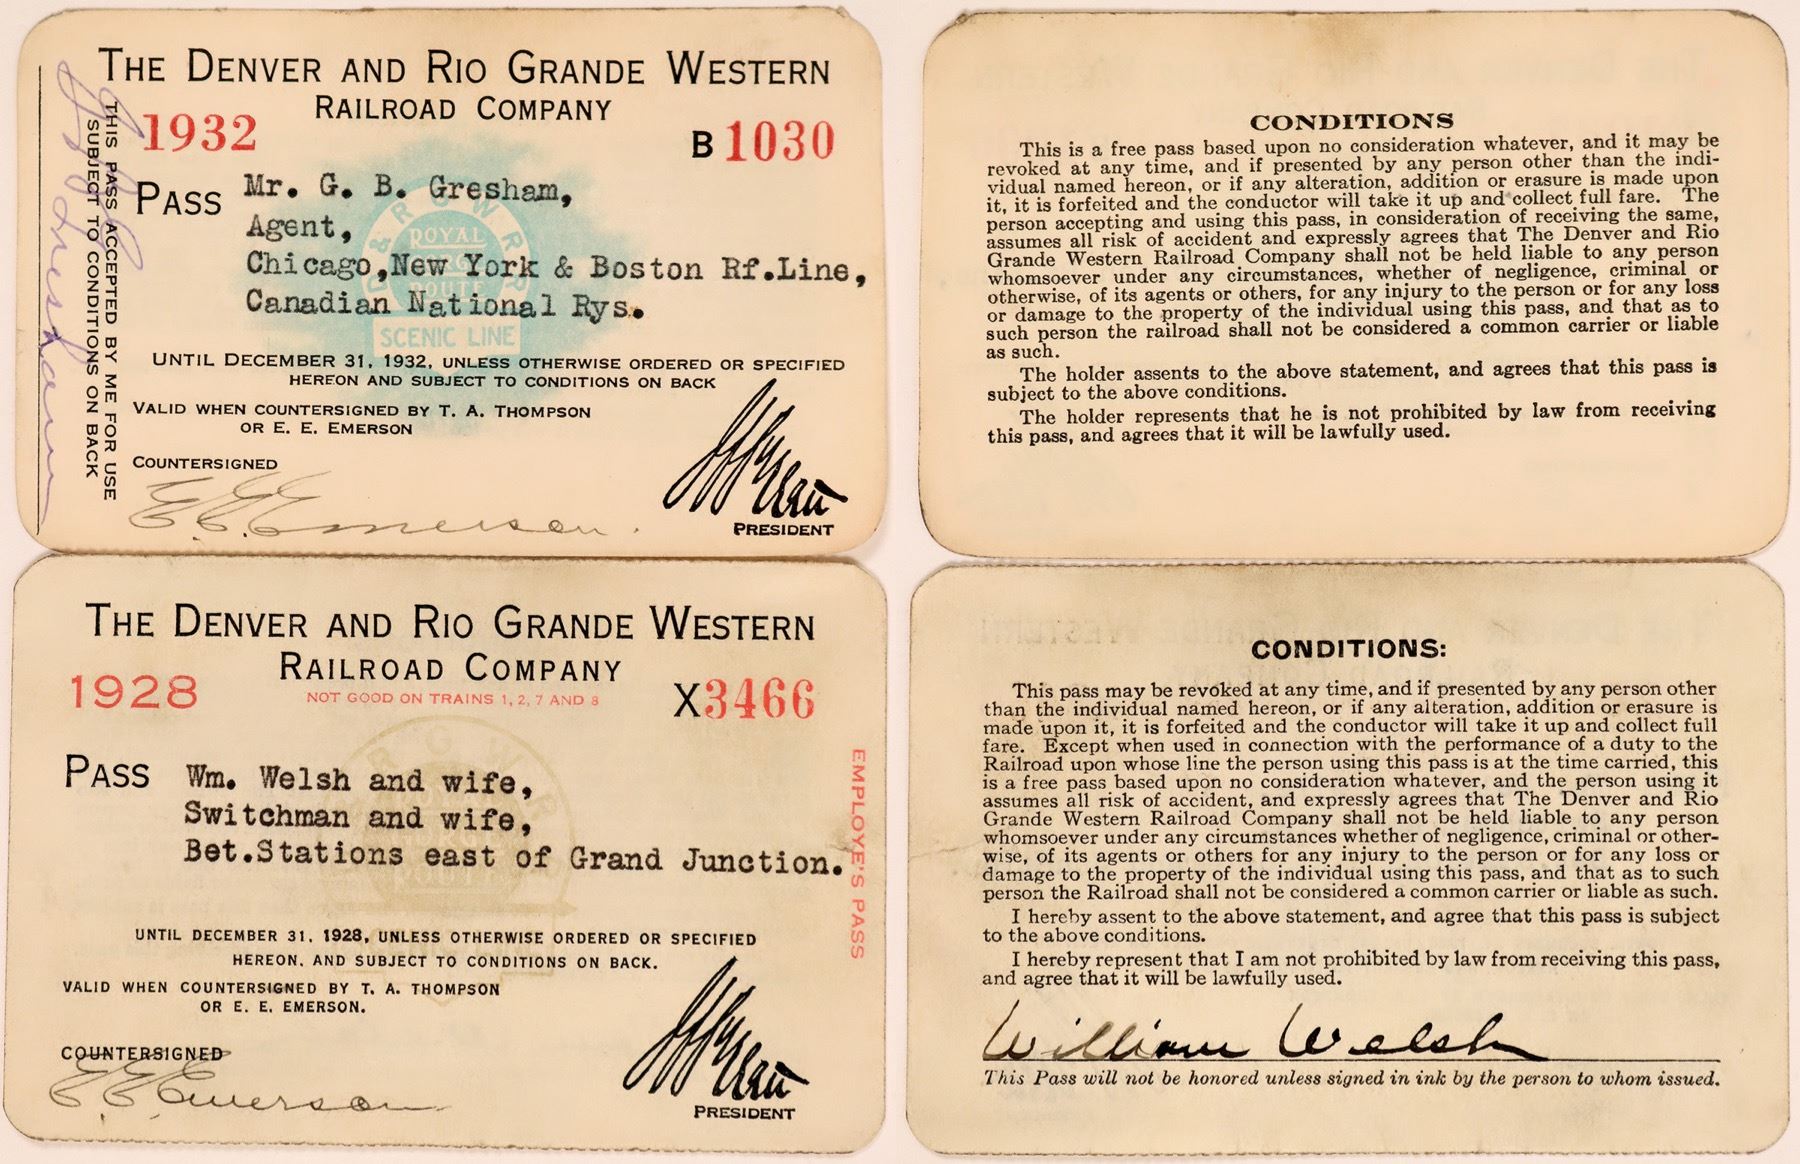 THE DENVER AND RIO GRANDE WESTERN
RAILROAD COMPANY
1932
B 1030
PASS Mr. G. B. Gresham,
Agent,
Chicago,New York & Boston Rf.Line,
Canadian National Rys.
D & R G W R R
ROYAL
GORGE
ROUTE
SCENIC LINE
UNTIL DECEMBER 31, 1932, UNLESS OTHERWISE ORDERED OR SPECIFIED
HEREON AND SUBJECT TO CONDITIONS ON BACK
VALID WHEN COUNTERSIGNED BY T. A. THOMPSON
OR E. E. EMERSON
COUNTERSIGNED
E. E. Emerson.
PRESIDENT
THIS PASS ACCEPTED BY ME FOR USE
SUBJECT TO CONDITIONS ON BACK
Gresham
CONDITIONS
This is a free pass based upon no consideration whatever, and it may be
revoked at any time, and if presented by any person other than the indi-
vidual named hereon, or if any alteration, addition or erasure is made upon
it, it is forfeited and the conductor will take it up and collect full fare. The
person accepting and using this pass, in consideration of receiving the same,
assumes all risk of accident and expressly agrees that The Denver and Rio
Grande Western Railroad Company shall not be held liable to any person
whomsoever under any circumstances, whether of negligence, criminal or
otherwise, of its agents or others, for any injury to the person or for any loss
or damage to the property of the individual using this pass, and that as to
such person the railroad shall not be considered a common carrier or liable
as such.
The holder assents to the above statement, and agrees that this pass is
subject to the above conditions.
The holder represents that he is not prohibited by law from receiving
this pass, and agrees that it will be lawfully used.
THE DENVER AND RIO GRANDE WESTERN
RAILROAD COMPANY
1928
NOT GOOD ON TRAINS 1, 2, 7 AND 8
X3466
PASS Wm. Welsh and wife,
Switchman and wife,
Bet.Stations east of Grand Junction.
EMPLOYE'S PASS
UNTIL DECEMBER 31, 1928, UNLESS OTHERWISE ORDERED OR SPECIFIED
HEREON, AND SUBJECT TO CONDITIONS ON BACK.
VALID WHEN COUNTERSIGNED BY T. A. THOMPSON
OR E. E. EMERSON.
COUNTERSIGNED
E. E. Emerson
PRESIDENT
CONDITIONS:
This pass may be revoked at any time, and if presented by any person other
than the individual named hereon, or if any alteration, addition or erasure is
made upon it, it is forfeited and the conductor will take it up and collect full
fare. Except when used in connection with the performance of a duty to the
Railroad upon whose line the person using this pass is at the time carried, this
is a free pass based upon no consideration whatever, and the person using it
assumes all risk of accident, and expressly agrees that The Denver and Rio
Grande Western Railroad Company shall not be held liable to any person
whomsoever under any circumstances whether of negligence, criminal or other-
wise, of its agents or others for any injury to the person or for any loss or
damage to the property of the individual using this pass, and that as to such
person the Railroad shall not be considered a common carrier or liable as such.
I hereby assent to the above statement, and agree that this pass is subject
to the above conditions.
I hereby represent that I am not prohibited by law from receiving this pass,
and agree that it will be lawfully used.
William Welsh
This Pass will not be honored unless signed in ink by the person to whom issued.